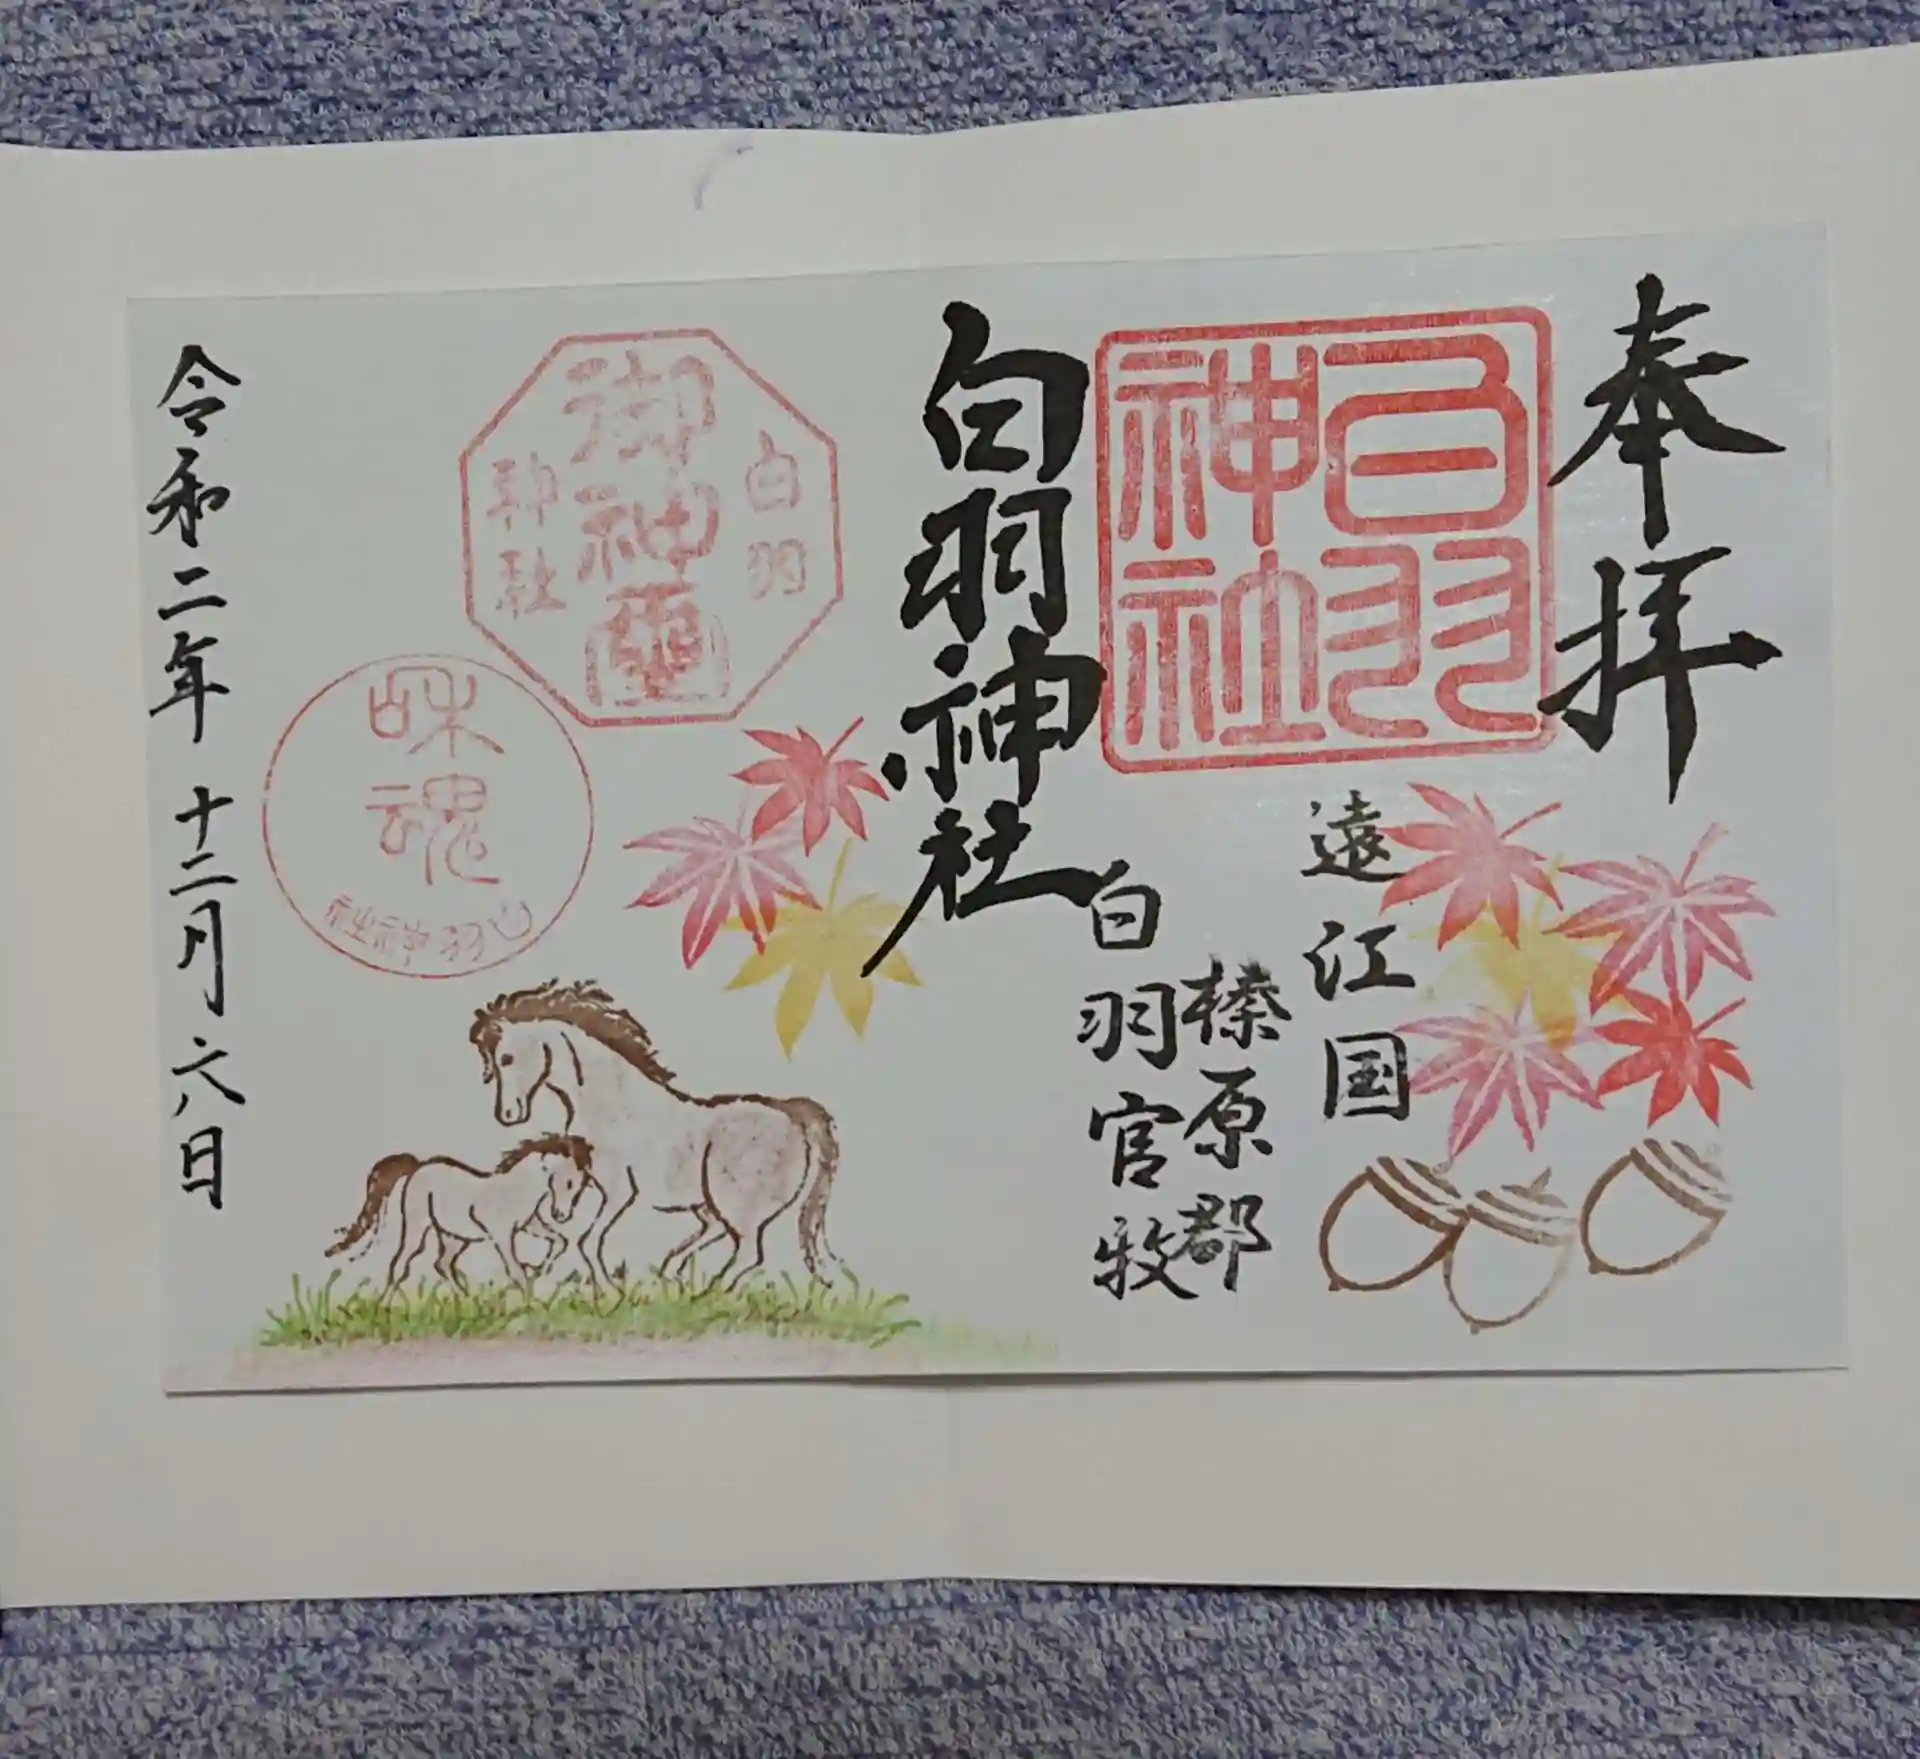 奉拝
白羽神社
遠江国
榛原郡
白羽官牧
白羽神社
白羽
御神璽
神社
和魂
白羽神社
令和二年十二月六日